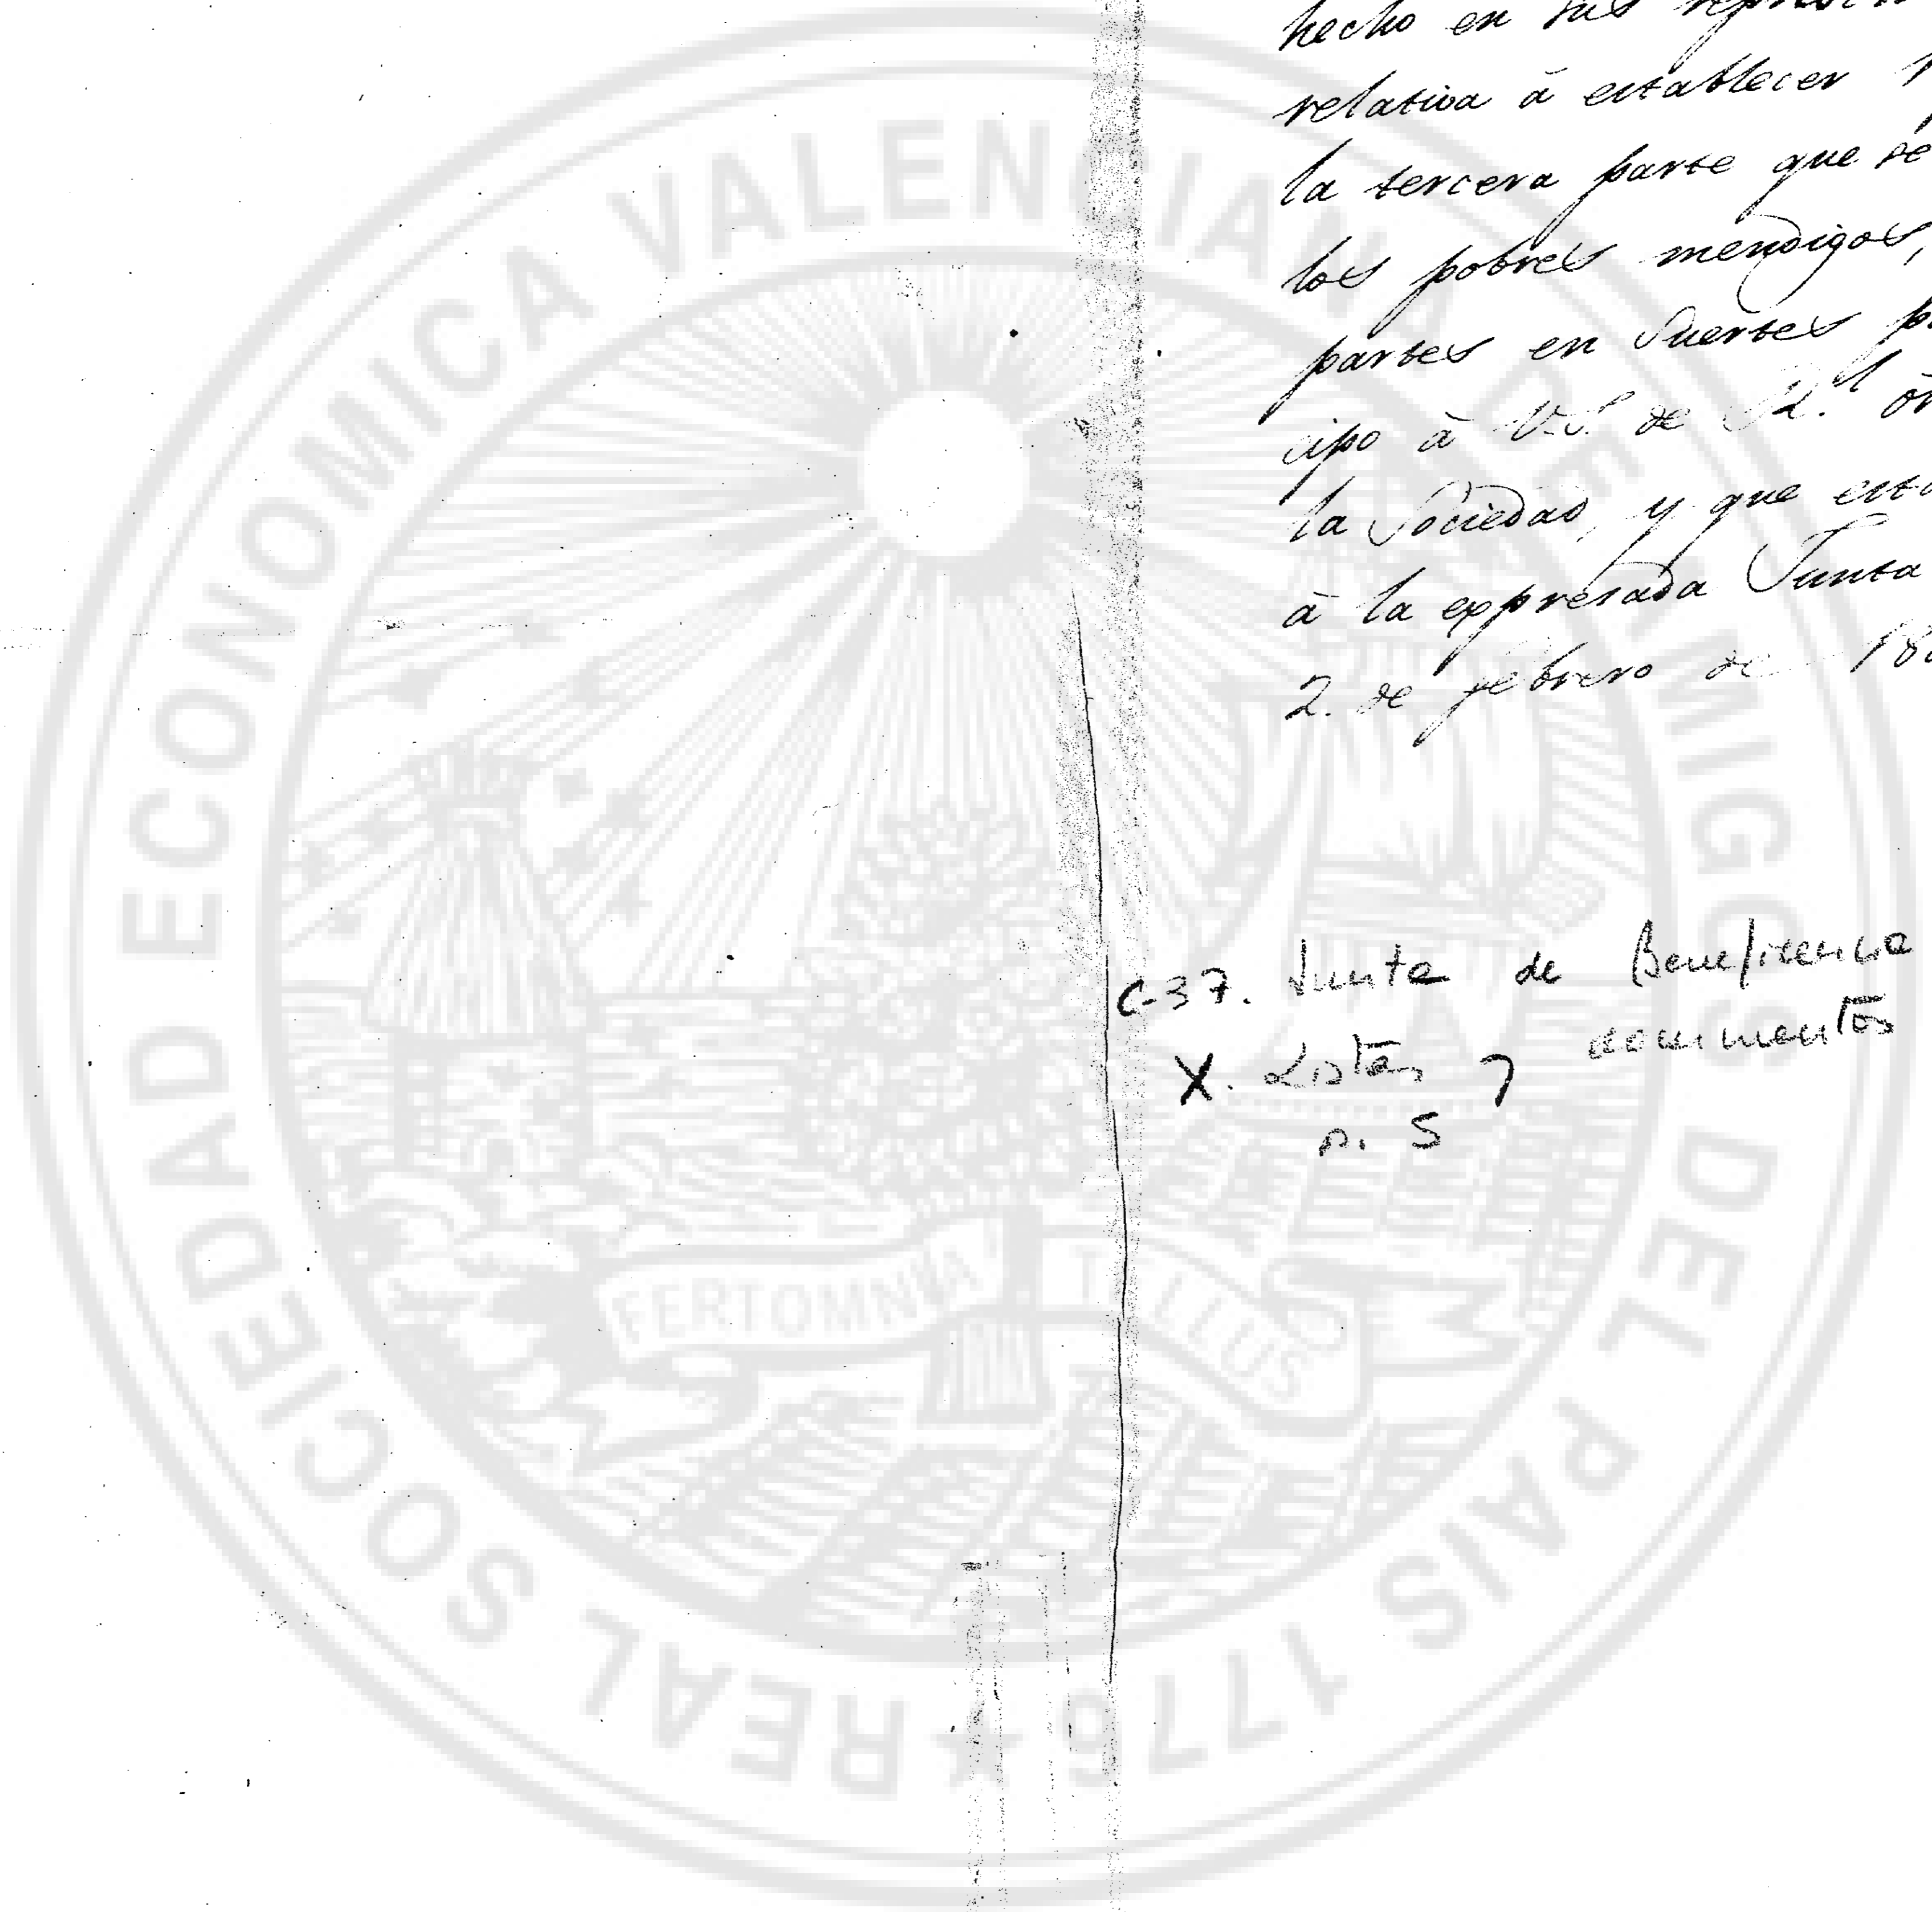 hecho en sus
relativa à establecer
la tercera parte que se
los pobres mendigos,
partes en Suertes
cipo à V.S. de Rl.
la Sociedad, y que
à la expresada Junta
2. de febrero de 18
C-37. Junta de Beneficencia
X. Listas y documentos
n. 5
REAL SOCIEDAD ECONOMICA VALENCIANA DE AMIGOS DEL PAIS 1776
FERTOMNIA TELLUS